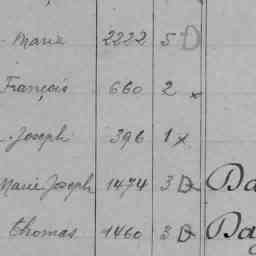 Marie 2222 5 D
François 660 2 x
Joseph 396 1 x
Marie Joseph 1474 3 D
Thomas 1460 3 D